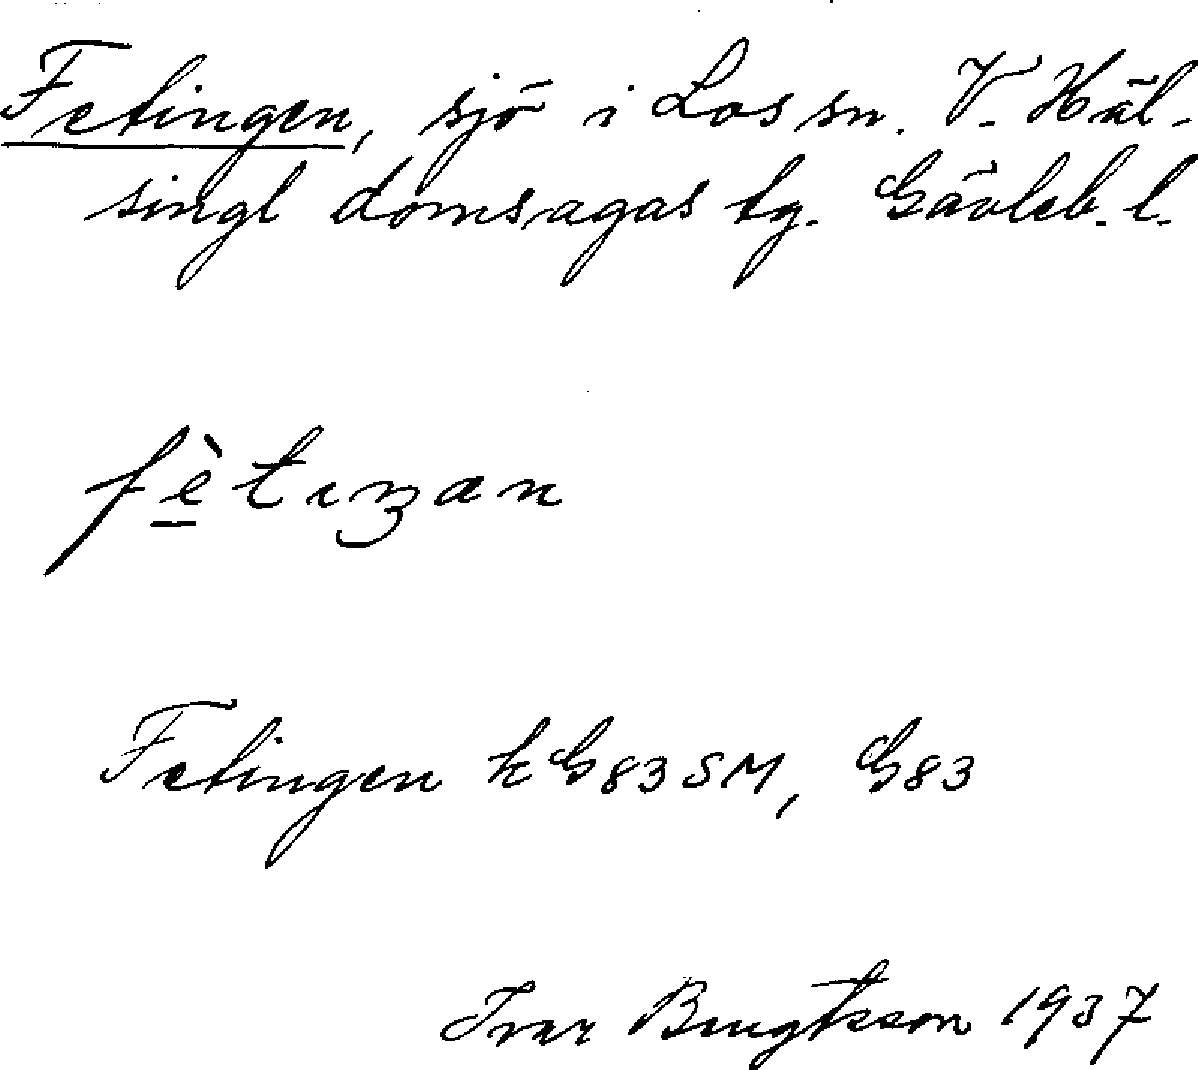 Fetingen, sjö i Los sn. V. Häl-
singl domsagas tg. Gävleb. l.
fètıŋan
Fetingen kG83SM, G83
Ivar Bengtsson 1937